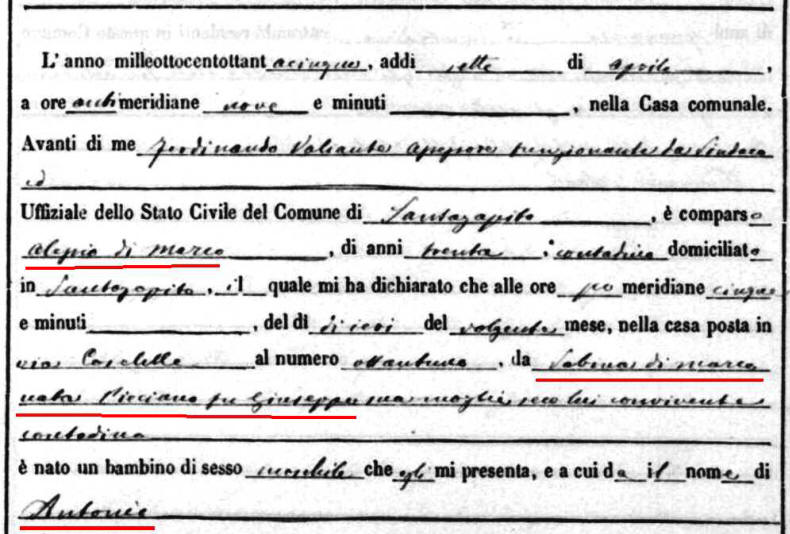 L'anno milleottocentottantacinque, addi sette di aprile,
a ore antimeridiane nove e minuti, nella Casa comunale.
Avanti di me Ferdinando Valiante assessore funzionante da Sindaco
ed
Uffiziale dello Stato Civile del Comune di Santagapito, è comparso
Alessio di Marco, di anni trenta, contadino domiciliato
in Santagapito, il quale mi ha dichiarato che alle ore po meridiane cinque
e minuti, del di di ieri del volgente mese, nella casa posta in
via Casdelle al numero ottantuno, da Sabina di Marco
nata Picciano fu Giuseppe sua moglie seco lui convivente
contadina
è nato un bambino di sesso maschile che egli mi presenta, e a cui da il nome di
Antonio